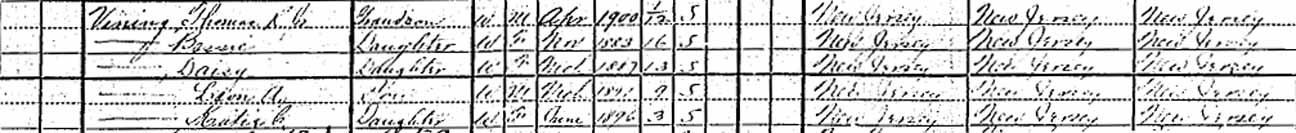 Vining Thomas R Jr Grandson W M Apr 1900 1/12 S New Jersey New Jersey New Jersey
—— Bessie Daughter W F Nov 1883 16 S New Jersey New Jersey New Jersey
—— Daisy Daughter W F Mch 1887 13 S New Jersey New Jersey New Jersey
—— Leon A Son W M Mch 1891 9 S New Jersey New Jersey New Jersey
—— Daughter W F June 1896 3 S New Jersey New Jersey New Jersey